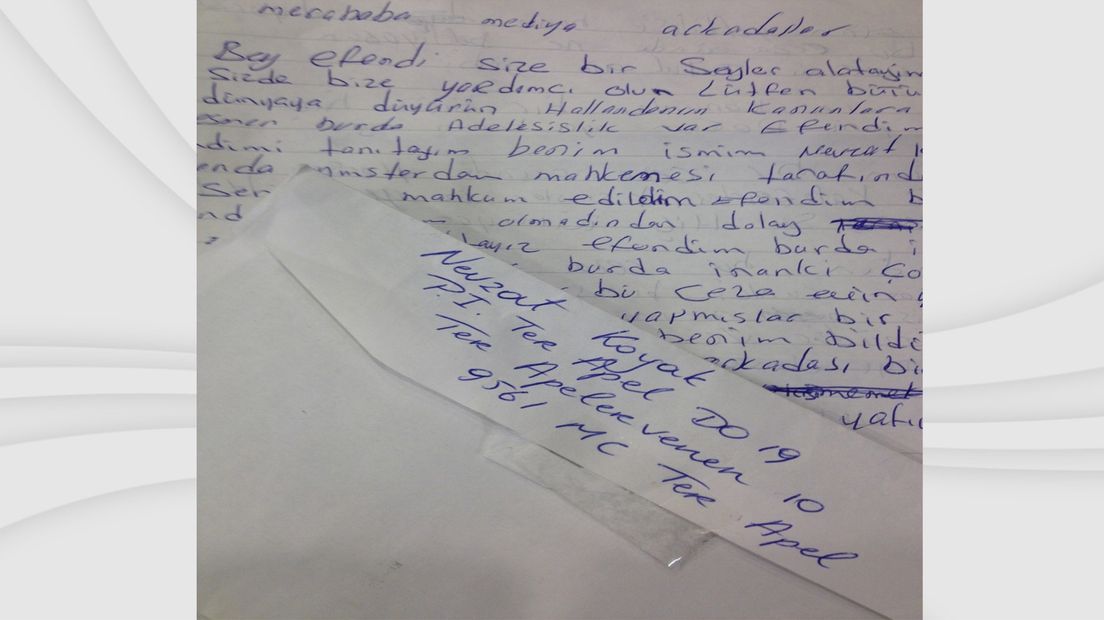 merababa mediya ackadaslar
Bey efendi size bir Seyler alatayım
Sizde bize yardımcı olun Lütfen bütü
dünyaya düyürün Hallandanın Kanunlara
burda Adelesislik var Efendim
dimi tanıtayım benim ismim Nevzat
enda Amsterdam mahkemesi tarafınd
Ser mahkum edildim efendim b
nd olmadından dolay
layız efendim burda i
burda inanki ço
bu Ceza
yapmıslar bir
benim bildi
ackadası bi
yatı
Nevzat Koyak
P.I. Ter Apel DO 19
Ter Apelervenen 10
9561 MC Ter Apel